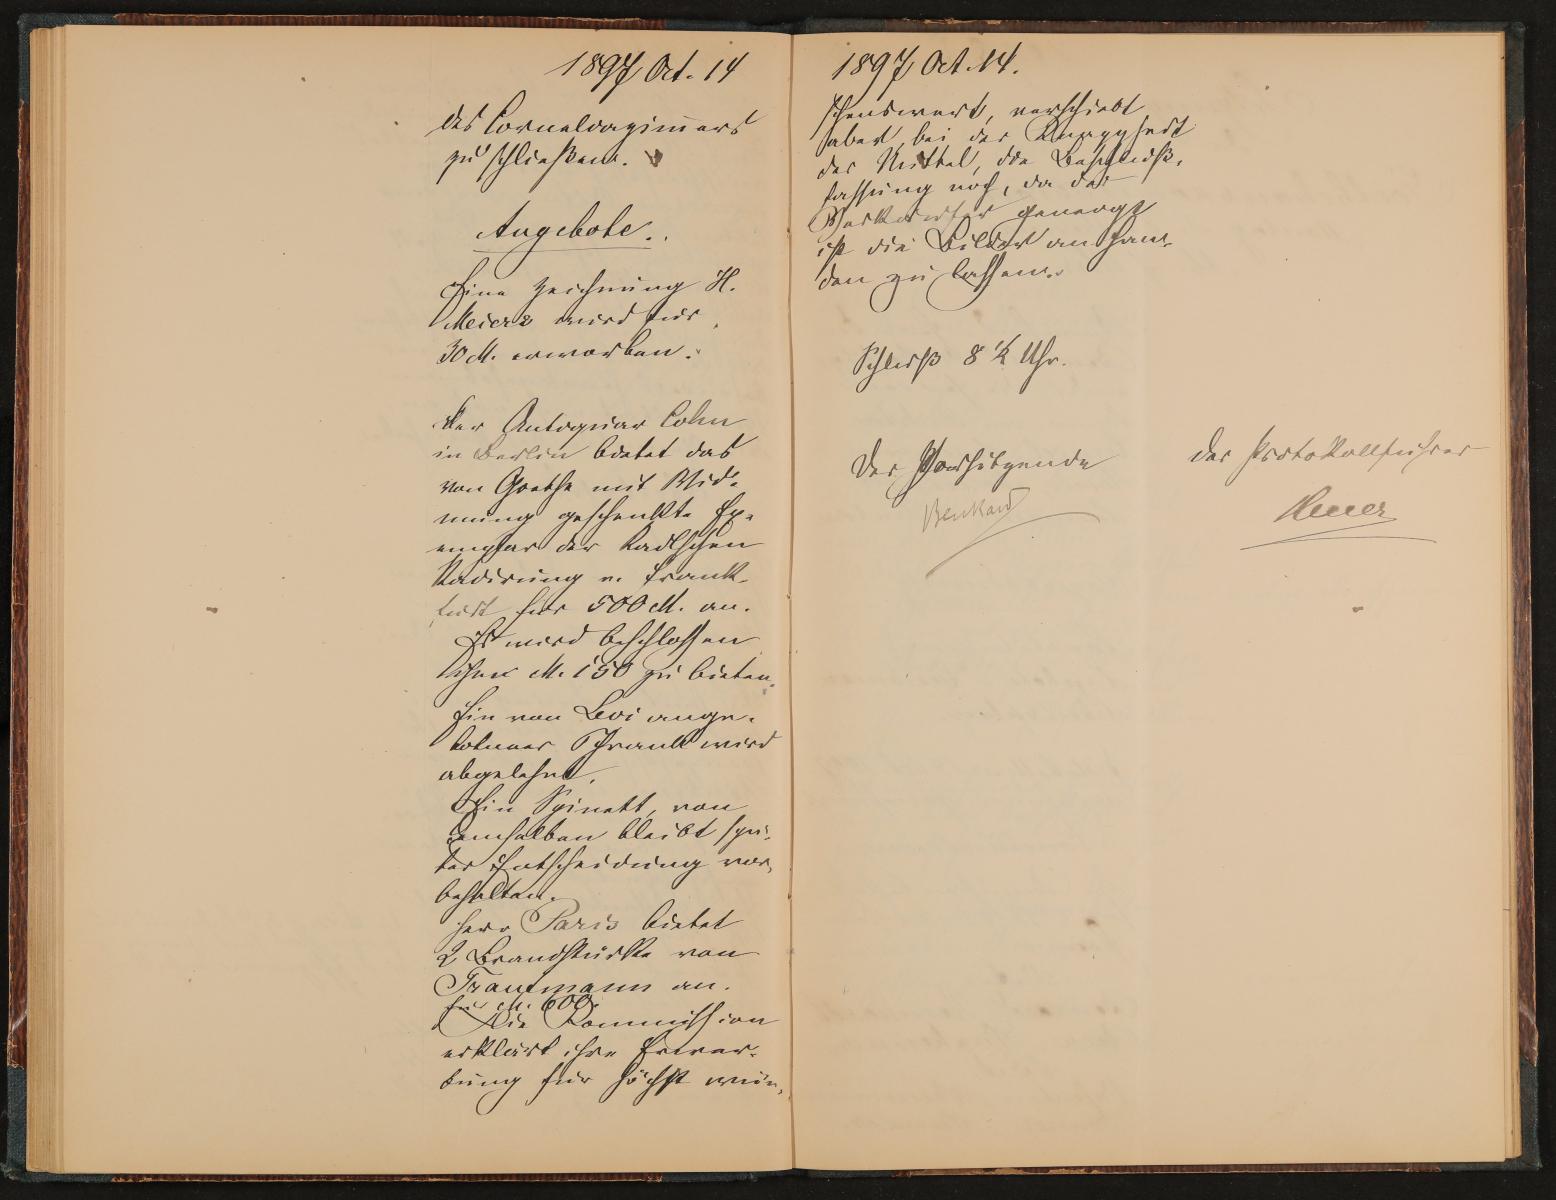 1897 Oct. 14
des Corneliazimmers
zu schließen.
Angebote.
Eine Zeichnung H.
Meiers wird für
30 M. erworben.
Der Antiquar Cohn
in Berlin bietet das
von Goethe mit Wid-
mung geschenkte Ex-
emplar der Radlschen
Radirung v. Frank-
furt für 500 M. an.
Es wird beschlossen
ihm M. 150 zu bieten.
Ein von Levi ange-
botener Schrank wird
abgelehnt.
Ein Spinett, von
demselben bleibt spä-
ter Entscheidung vor-
behalten.
Herr Paris bietet
2 Brandstücke von
Trautmann an.
für M. 600.
Die Kommission
erklärt ihre Erwer-
bung für höchst wün-
1897 Oct. 14.
schenswert, verschiebt
aber, bei der Knappheit
der Mittel, die Beschluß-
fassung noch, da der
Verkäufer geneigt
ist die Bilder an Han-
den zu lassen.
Schluß 8 1/2 Uhr.
Der Vorsitzende
Benkard
Der Protokollführer
Heuer